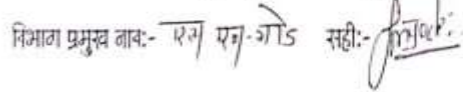 विभाग प्रमुख नाव:- एस एन. गोड सही:-